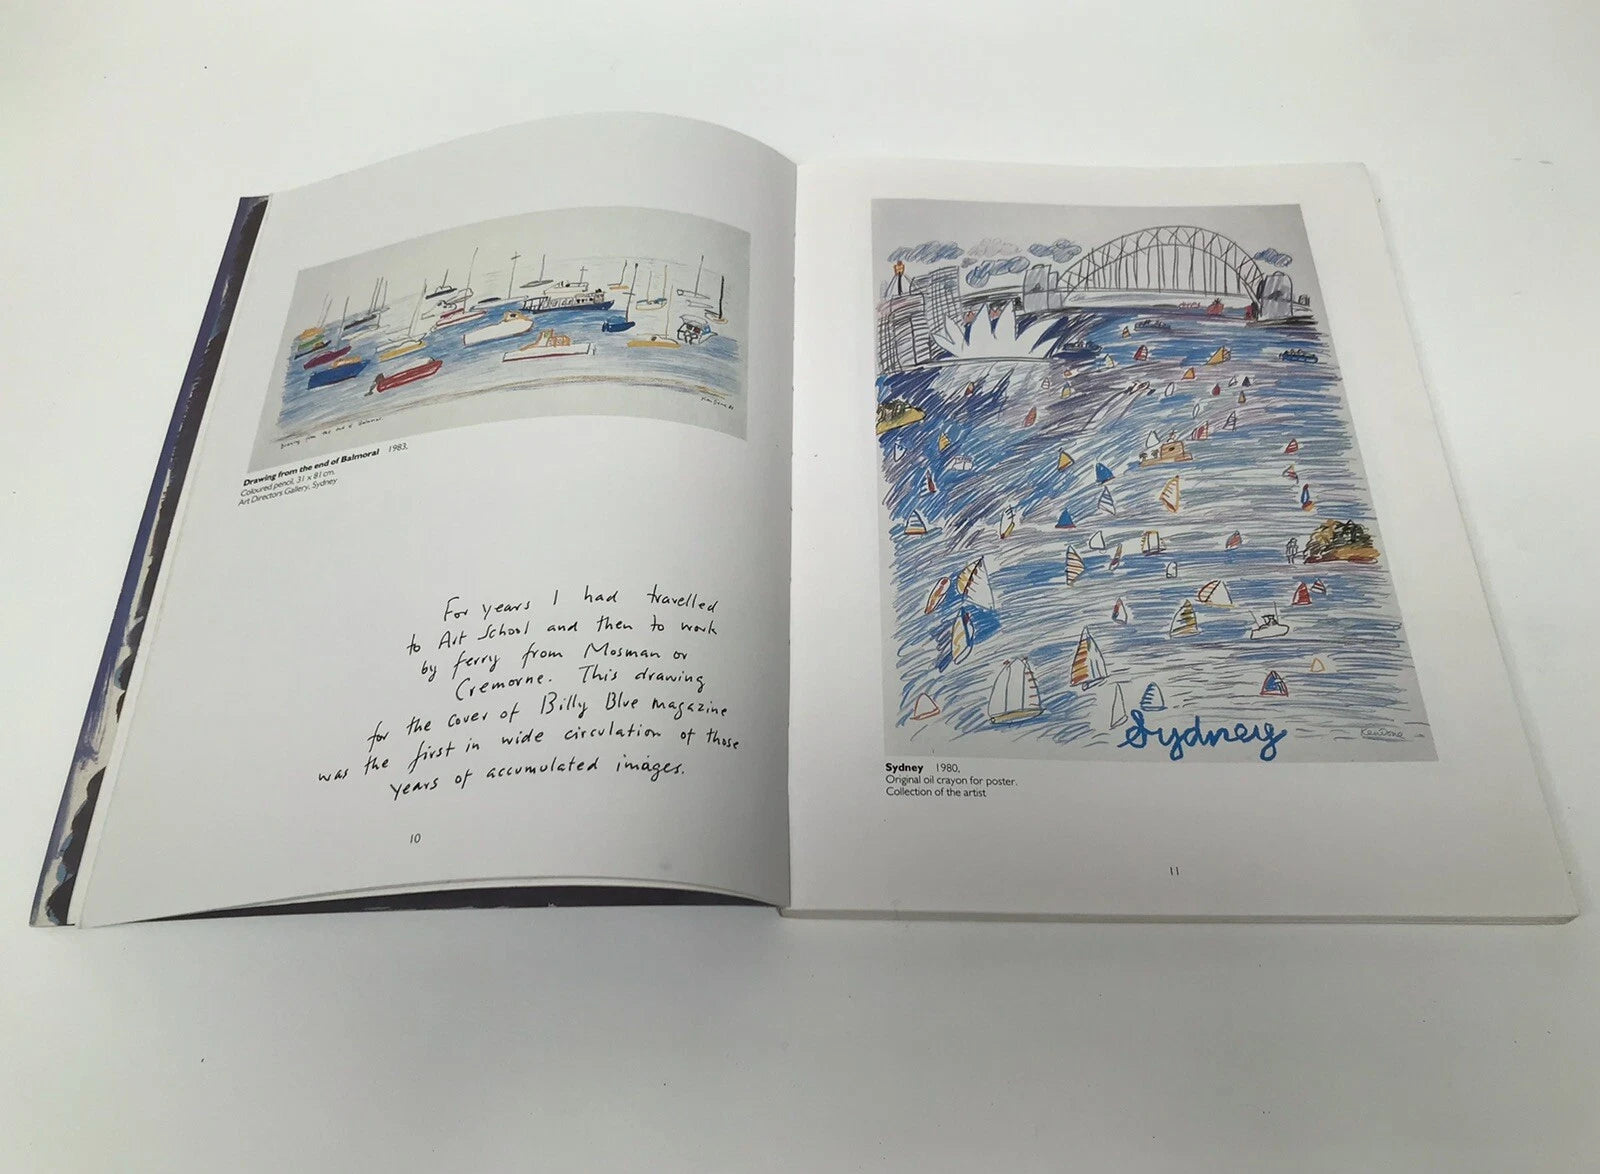 Drawing from the end of Balmoral.
Ken Done 83
Drawing from the end of Balmoral 1983.
Coloured pencil, 31 x 81cm.
Art Directors Gallery, Sydney
For years I had travelled
to Art School and then to work
by ferry from Mosman or
Cremorne. This drawing
for the cover of Billy Blue magazine
was the first in wide circulation of those
years of accumulated images.
10
Sydney
Ken Done
Sydney 1980.
Original oil crayon for poster.
Collection of the artist
11